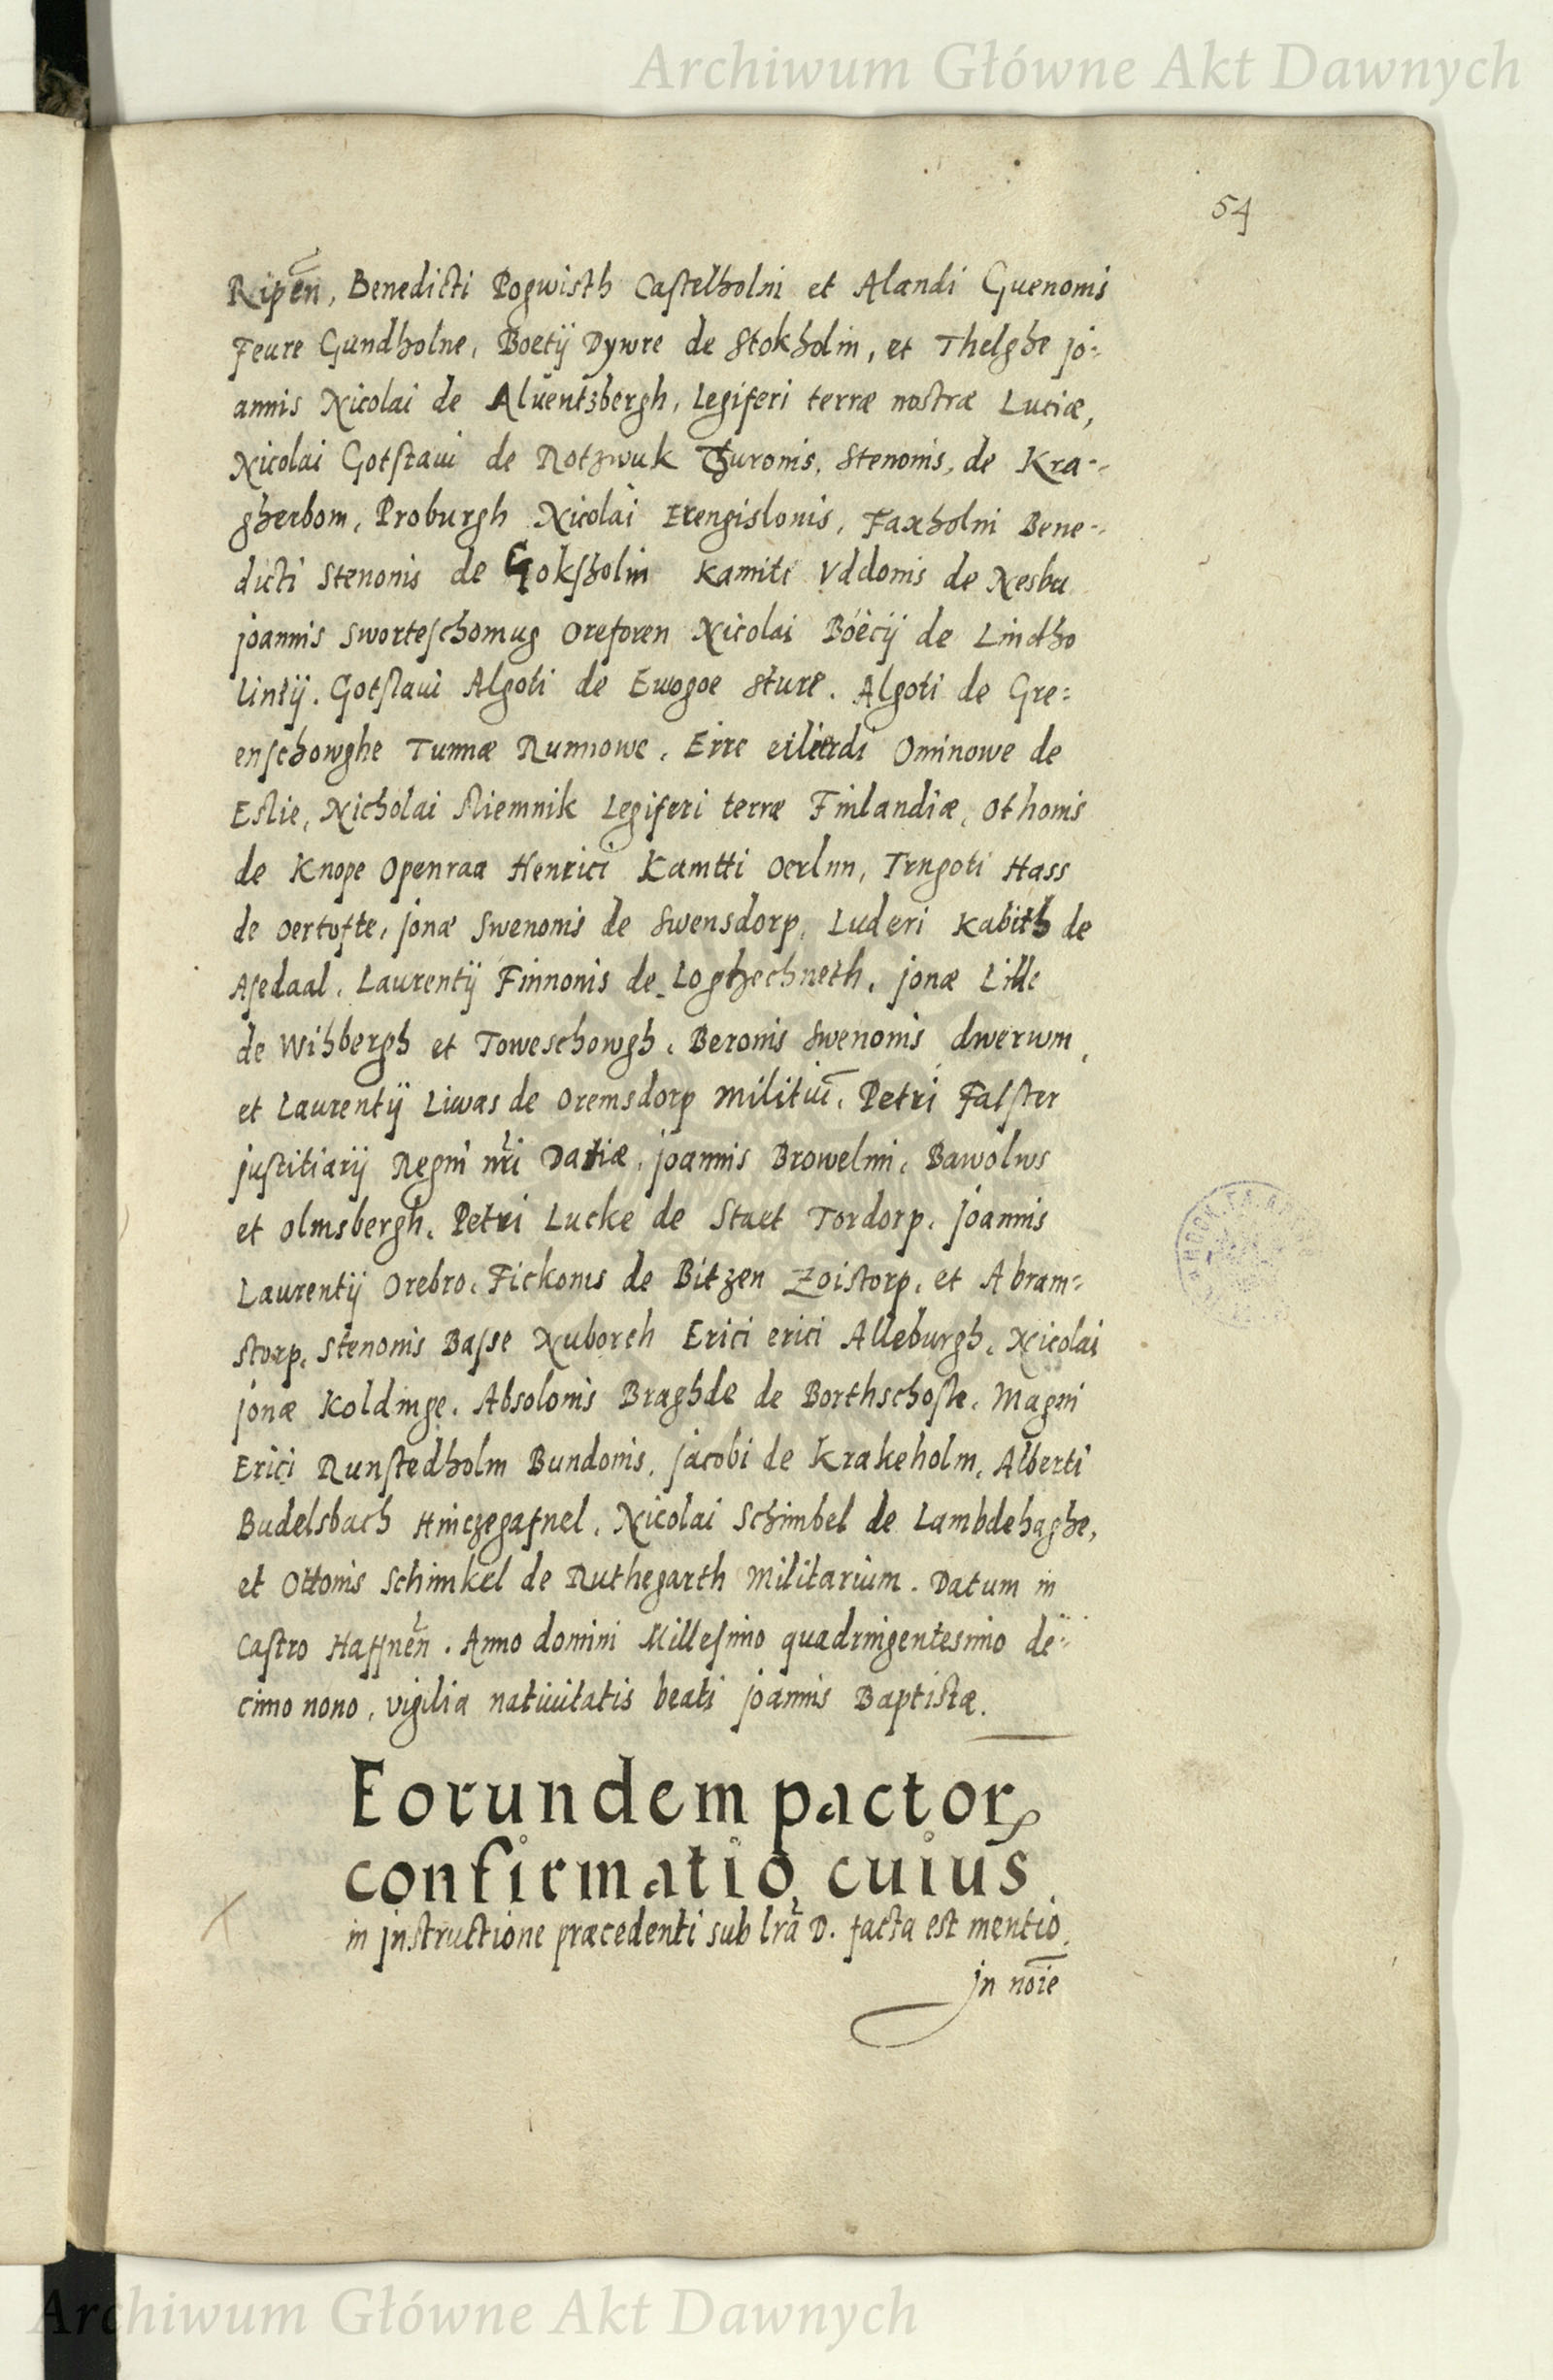 Archiwum Główne Akt Dawnych
54
Ripen̄, Benedicti Pogwisth Castelholm et Alandi Guenonis
Feure Gundholne, Boetij Dywre de Stokholm, et Thelghe jo=
annis Nicolai de Aluentzbergh, Legiferi terræ nostræ Luciæ,
Nicolai Gotstaui de Rotzwuk Thuronis, Stenonis, de Kra=
gherbom, Proburgh Nicolai Erengislonis, Faxholm Bene=
dicti Stenonis de Goksholm Kamiti Vddonis de Nesbu
joannis Swarteschomug Oreforen Nicolai Boecij de Lindho
lintij. Gotstaui Algoti de Ewogoe Sture. Algoti de Gre=
enschowghe Tunnæ Runnowe. Erre eilerdi Ominowe de
Estie, Nicholai Sliemnik Legiferi terræ Finlandiæ, Othonis
de Knope Openraa Henrici Kamtti Oerlun, Trugoti Hass
de Oertofte, jonæ Swenonis de Swensdorp, Luderi Kabith de
Asedaal. Laurentij Finnonis de Loghechneth, jonæ Lille
de Wihbergh et Toweschowgh. Beronis Swenonis dwerum,
et Laurentij Liwas de Oremsdorp militū. Petri Falster
justitiarij Regni nr̄i Datiæ, joannis Browelmi, Bawolws
et Olmsbergh, Petri Lucke de Staet Tordorp, joannis
Laurentij Orebro, Fickonis de Bitzen Zoistorp, et Abram=
storp, Stenonis Basse Nuborch Erici erici Alleburgh, Nicolai
jonæ Koldinge, Absolonis Braghde de Borthschoste, Magni
Erici Runstedholm Bundonis, jacobi de Krakeholm, Alberti
Budelsbach Hinczegafnel, Nicolai Schimbel de Lambdehaghe,
et Ottonis Schimkel de Ruthegarth militarium. Datum in
Castro Haffnen̄. Anno domini Millesimo quadringentesimo de=
cimo nono, vigilia natiuitatis beati joannis Baptistæ.
Eorundem pactorꝝ
confirmatio, cuius
in jnstructione præcedenti sub lrā D. facta est mentio.
jn noīe
Archiwum Główne Akt Dawnych